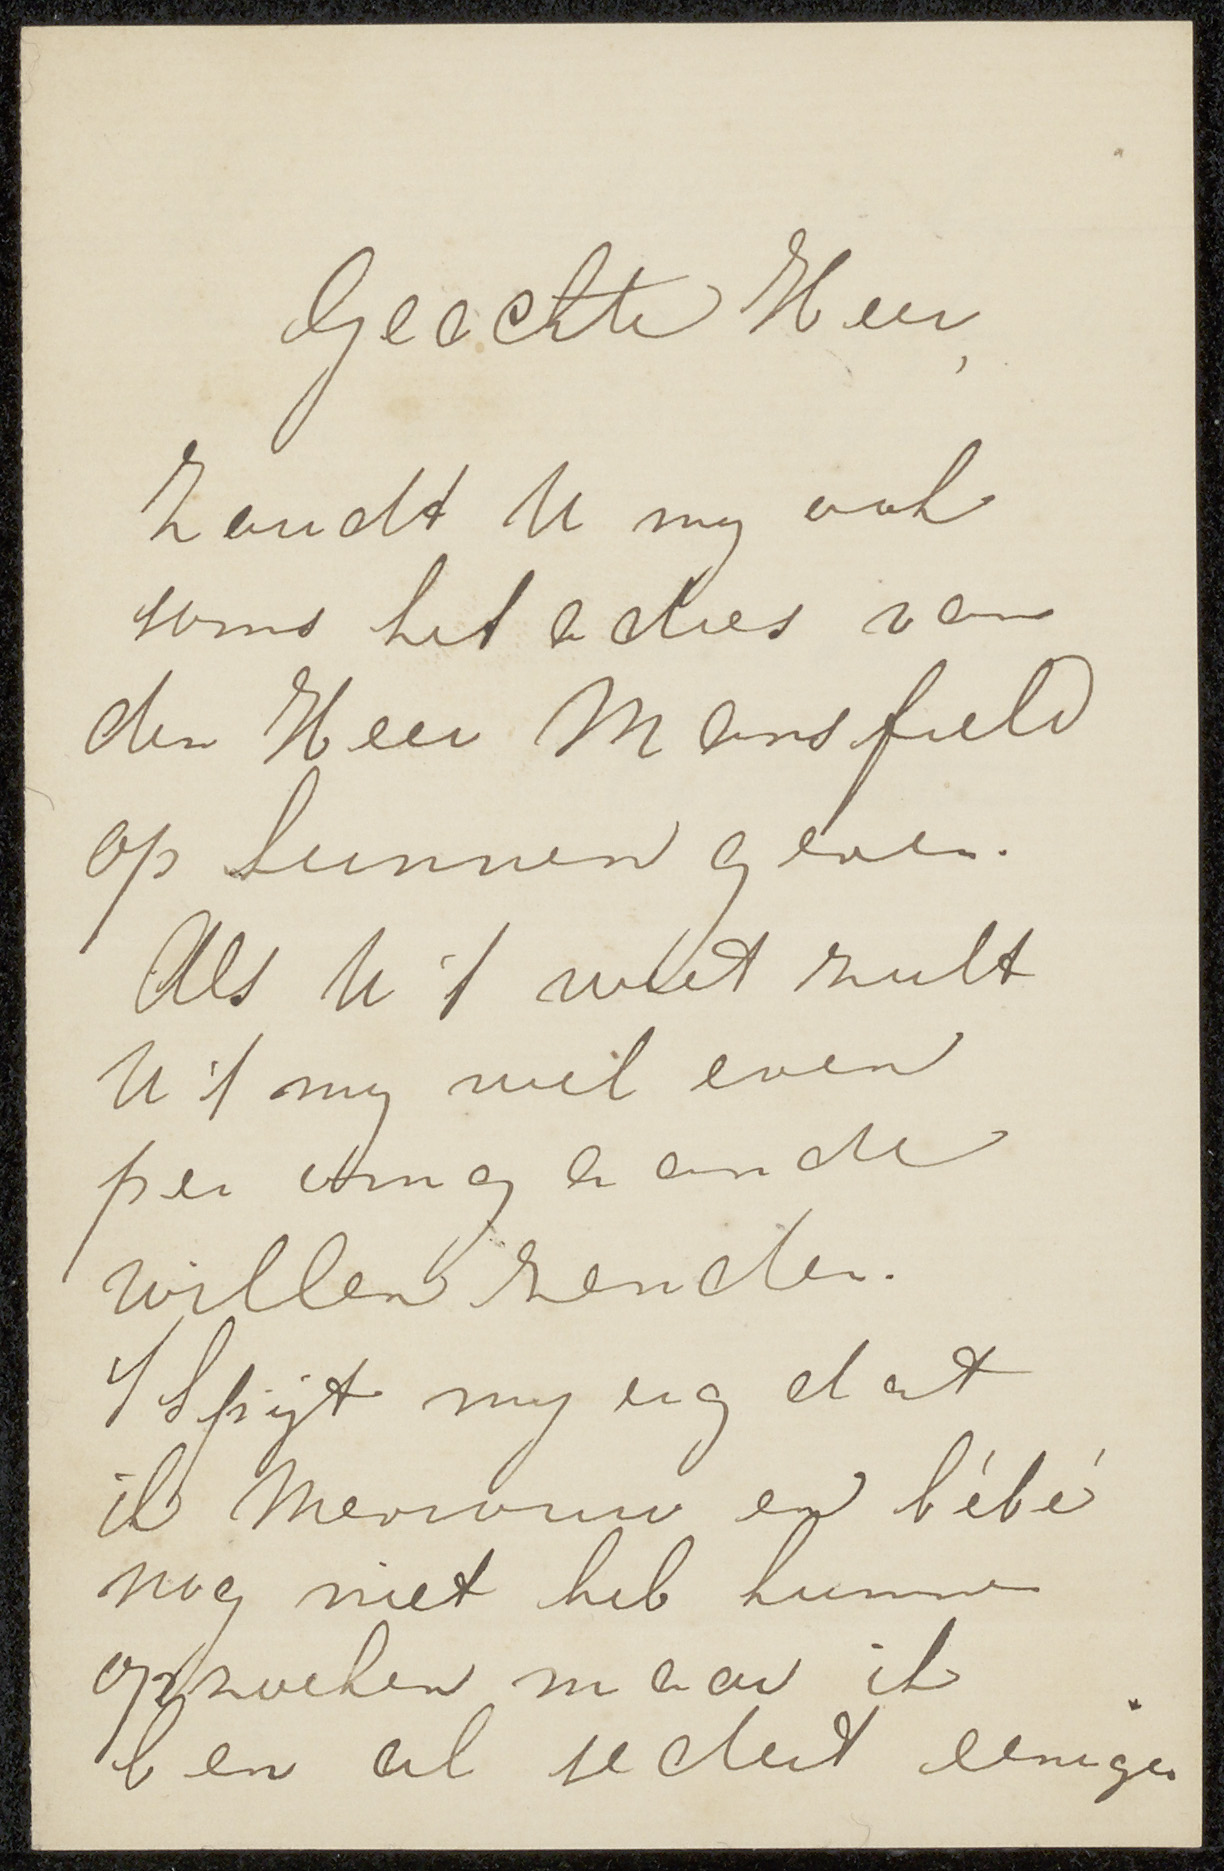 Geachte Heer,
Zoudt U my ook
soms het adres van
den Heer Mansfield
op kunnen geven.
Als U 't weet zult
U 't my wel even
per omgaande
willen zenden.
't Spijt my erg dat
ik Mevrouw en bébé
nog niet heb kunnen
opzoeken maar ik
ben al sedert eenige